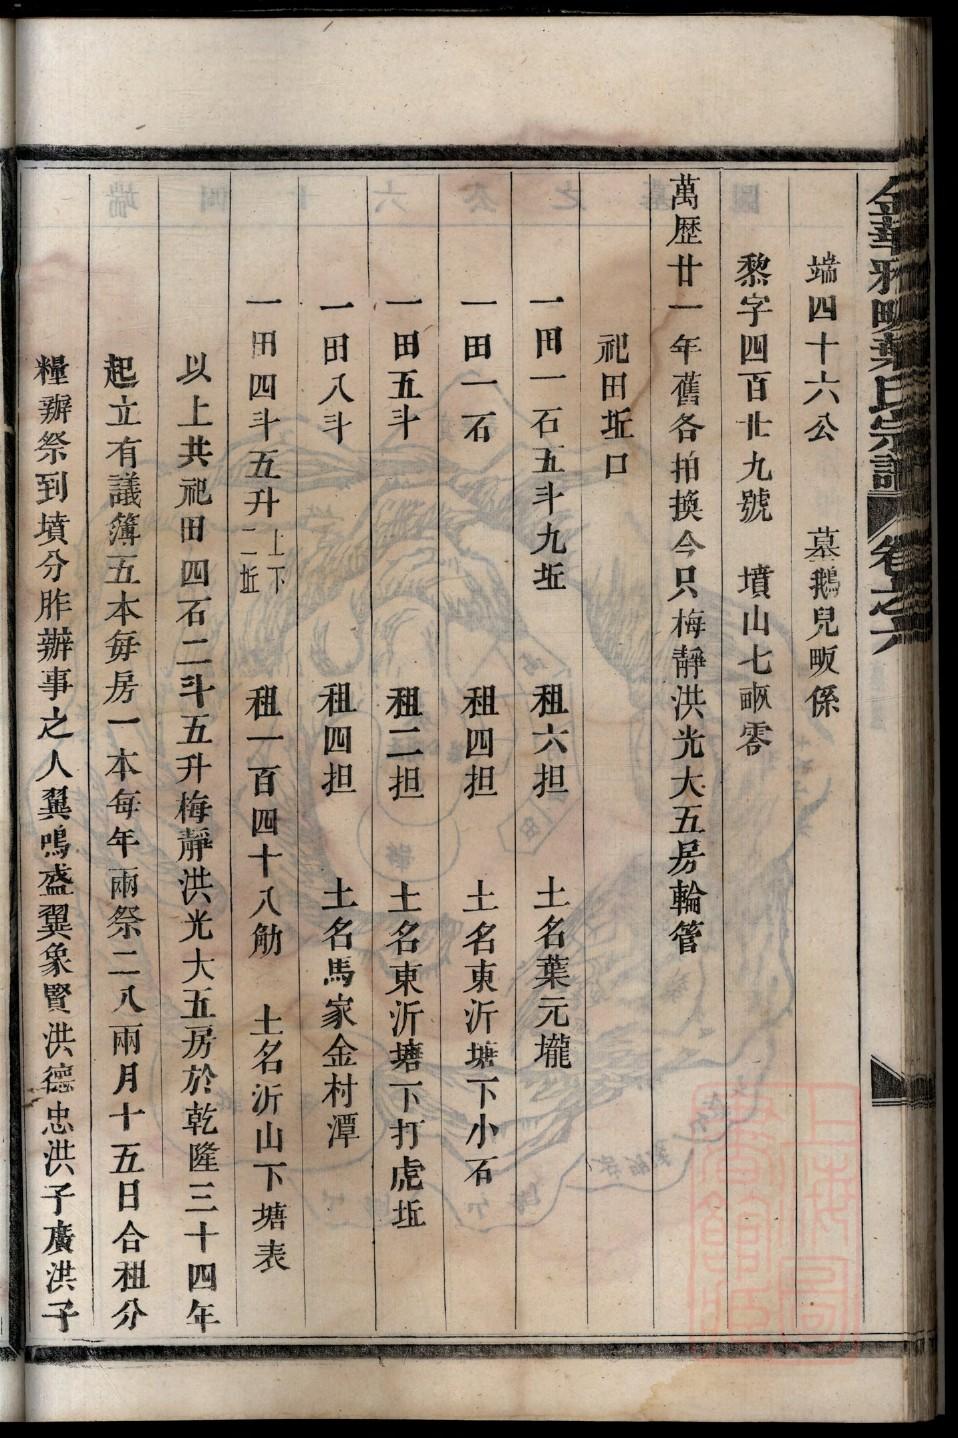 金華雅畈葉氏宗譜 卷之六
端四十六公 墓鵝兒畈係
黎字四百廿九號 墳山七畝零
萬歷廿一年舊各拍換今只梅靜洪光大五房輪管
祀田坵口
一田一石五斗九坵 租六担 土名葉元壠
一田一石 租四担 土名東沂塘下小石
一田五斗 租二担 土名東沂塘下打虎坵
一田八斗 租四担 土名馬家金村潭
一田四斗五升上下二坵 租一百四十八觔 土名沂山下塘表
以上共祀田四石二斗五升梅靜洪光大五房於乾隆三十四年
起立有議簿五本每房一本每年兩祭二八兩月十五日合租分
糧辦祭到墳分胙辦事之人翼鳴盛翼象賢洪德忠洪子廣洪子